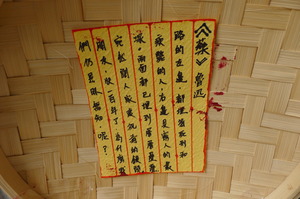 《藥》魯迅
路的左邊,都埋着死刑和
瘐斃的人,右邊是窮人的叢
塚。兩面都已埋到層層疊疊,
宛然闊人家祝壽的饅頭
一百年了,為什麼
們仍是 知呢?